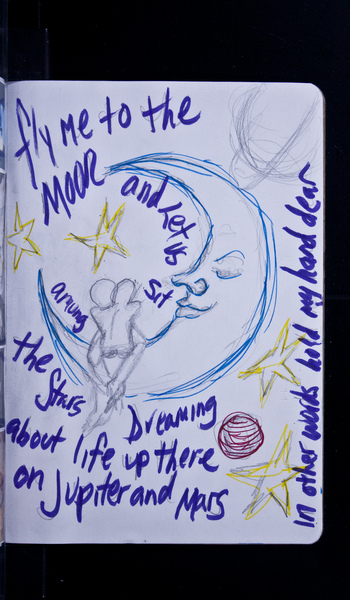 fly me to the
MOON
and Let us
sit
among
the Stars
Dreaming
about life up there
on Jupiter and Mars
in other words hold my hand dear